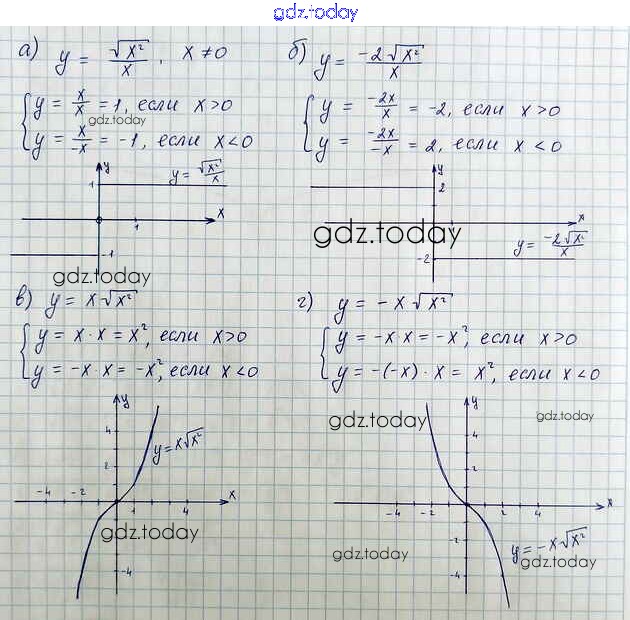 gdz.today
а) y = √x² / x, x ≠ 0
{ y = x/x = 1, если x > 0
gdz.today
y = x/-x = 1, если x < 0
y
1
y = √x² / x
x
1
-1
gdz.today
б) y = -2√x² / x
{ y = -2x/x = -2, если x > 0
y = -2x/-x = 2, если x < 0
y
2
x
gdz.today
y = -2√x² / x
-2
в) y = x√x²
{ y = x·x = x², если x > 0
y = -x·x = -x², если x < 0
y
4
y = x√x²
2
-4 -2 1 4 x
gdz.today
-4
г) y = -x√x²
{ y = -x·x = -x², если x > 0
y = -(-x)·x = x², если x < 0
y
gdz.today
gdz.today
4
2
-4 -2 2 4 x
-2
gdz.today
y = -x√x²
gdz.today
-4